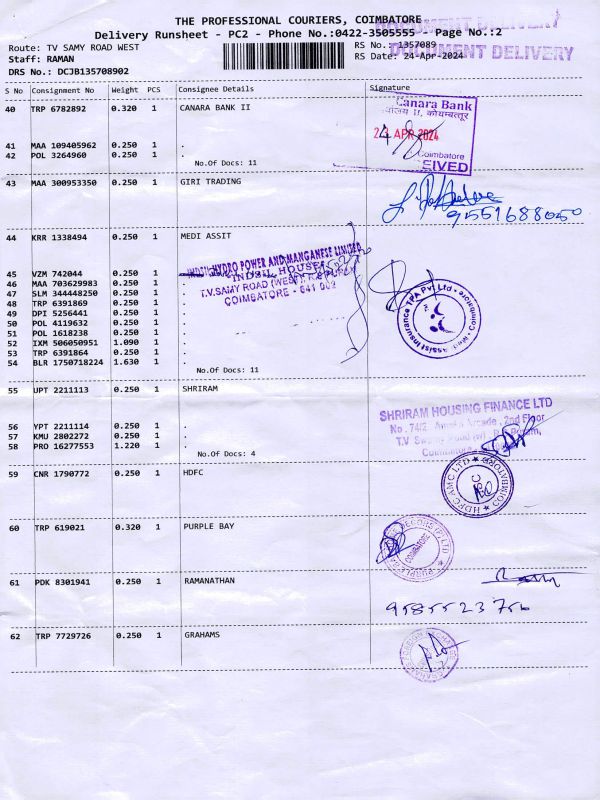 THE PROFESSIONAL COURIERS, COIMBATORE
Delivery Runsheet - PC2 - Phone No.:0422-3505555 - Page No.:2
DOCUMENT DELIVERY
DOCUMENT DELIVERY
Route: TV SAMY ROAD WEST
RS No.: 1357089
Staff: RAMAN
RS Date: 24-Apr-2024
DRS No.: DCJB135708902
S No Consignment No Weight PCS Consignee Details Signature
40 TRP 6782892 0.320 1 CANARA BANK II
Canara Bank
II, कोयम्बत्तूर
APR 2024
Coimbatore
EIVED
41 MAA 109405962 0.250 1 .
42 POL 3264960 0.250 1 .
No.Of Docs: 11
43 MAA 300953350 0.250 1 GIRI TRADING
9551688050
44 KRR 1338494 0.250 1 MEDI ASSIT
INDSIL HYDRO POWER AND MANGANESE LIMITED
INDSIL HOUSE
T.V.SAMY ROAD (WEST), R.S. PURAM
COIMBATORE - 641 002
45 VZM 742044 0.250 1 .
46 MAA 703629983 0.250 1 .
47 SLM 344448250 0.250 1 .
48 TRP 6391869 0.250 1 .
49 DPI 5256441 0.250 1 .
50 POL 4119632 0.250 1 .
51 POL 1618238 0.250 1 .
52 IXM 506050951 1.090 1 .
53 TRP 6391864 0.250 1 .
54 BLR 1750718224 1.630 1 .
No.Of Docs: 11
Medi Assist Insurance TPA Pvt Ltd. Coimbatore
55 UPT 2211113 0.250 1 SHRIRAM
SHRIRAM HOUSING FINANCE LTD
No. 74/2 Arcade, 2nd Floor
T.V. Swamy Road (w) R.S. Puram,
56 YPT 2211114 0.250 1 .
57 KMU 2802272 0.250 1 .
58 PRO 16277553 1.220 1 .
No.Of Docs: 4
59 CNR 1790772 0.250 1 HDFC
HDFC AMC LTD COIMBATORE
60 TRP 619021 0.320 1 PURPLE BAY
COIMBATORE
61 PDK 8301941 0.250 1 RAMANATHAN
9585523756
62 TRP 7729726 0.250 1 GRAHAMS